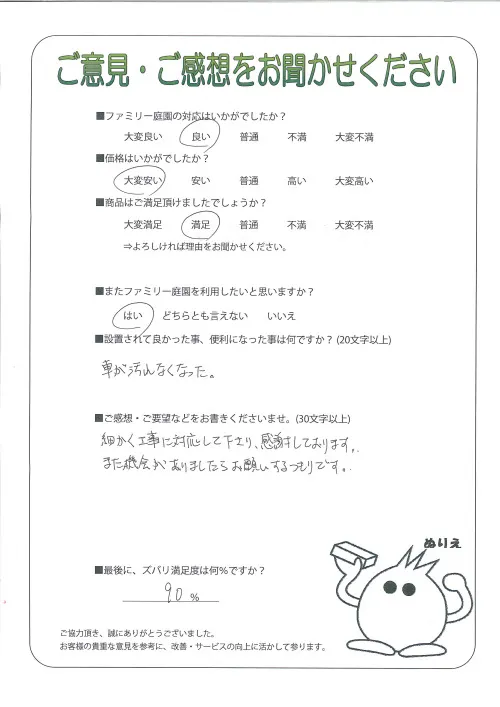 ご意見・ご感想をお聞かせください
■ファミリー庭園の対応はいかがでしたか？
大変良い　良い　普通　不満　大変不満
■価格はいかがでしたか？
大変安い　安い　普通　高い　大変高い
■商品はご満足頂けましたでしょうか？
大変満足　満足　普通　不満　大変不満
⇒よろしければ理由をお聞かせください。
■またファミリー庭園を利用したいと思いますか？
はい　どちらとも言えない　いいえ
■設置されて良かった事、便利になった事は何ですか？(20文字以上)
車が汚んなくなった。
■ご感想・ご要望などをお書きくださいませ。(30文字以上)
細かく工事に対応して下さり、感謝しております。
また機会がありましたらお願いするつもりです。
ぬりえ
■最後に、ズバリ満足度は何％ですか？
90 %
ご協力頂き、誠にありがとうございました。
お客様の貴重な意見を参考に、改善・サービスの向上に活かして参ります。